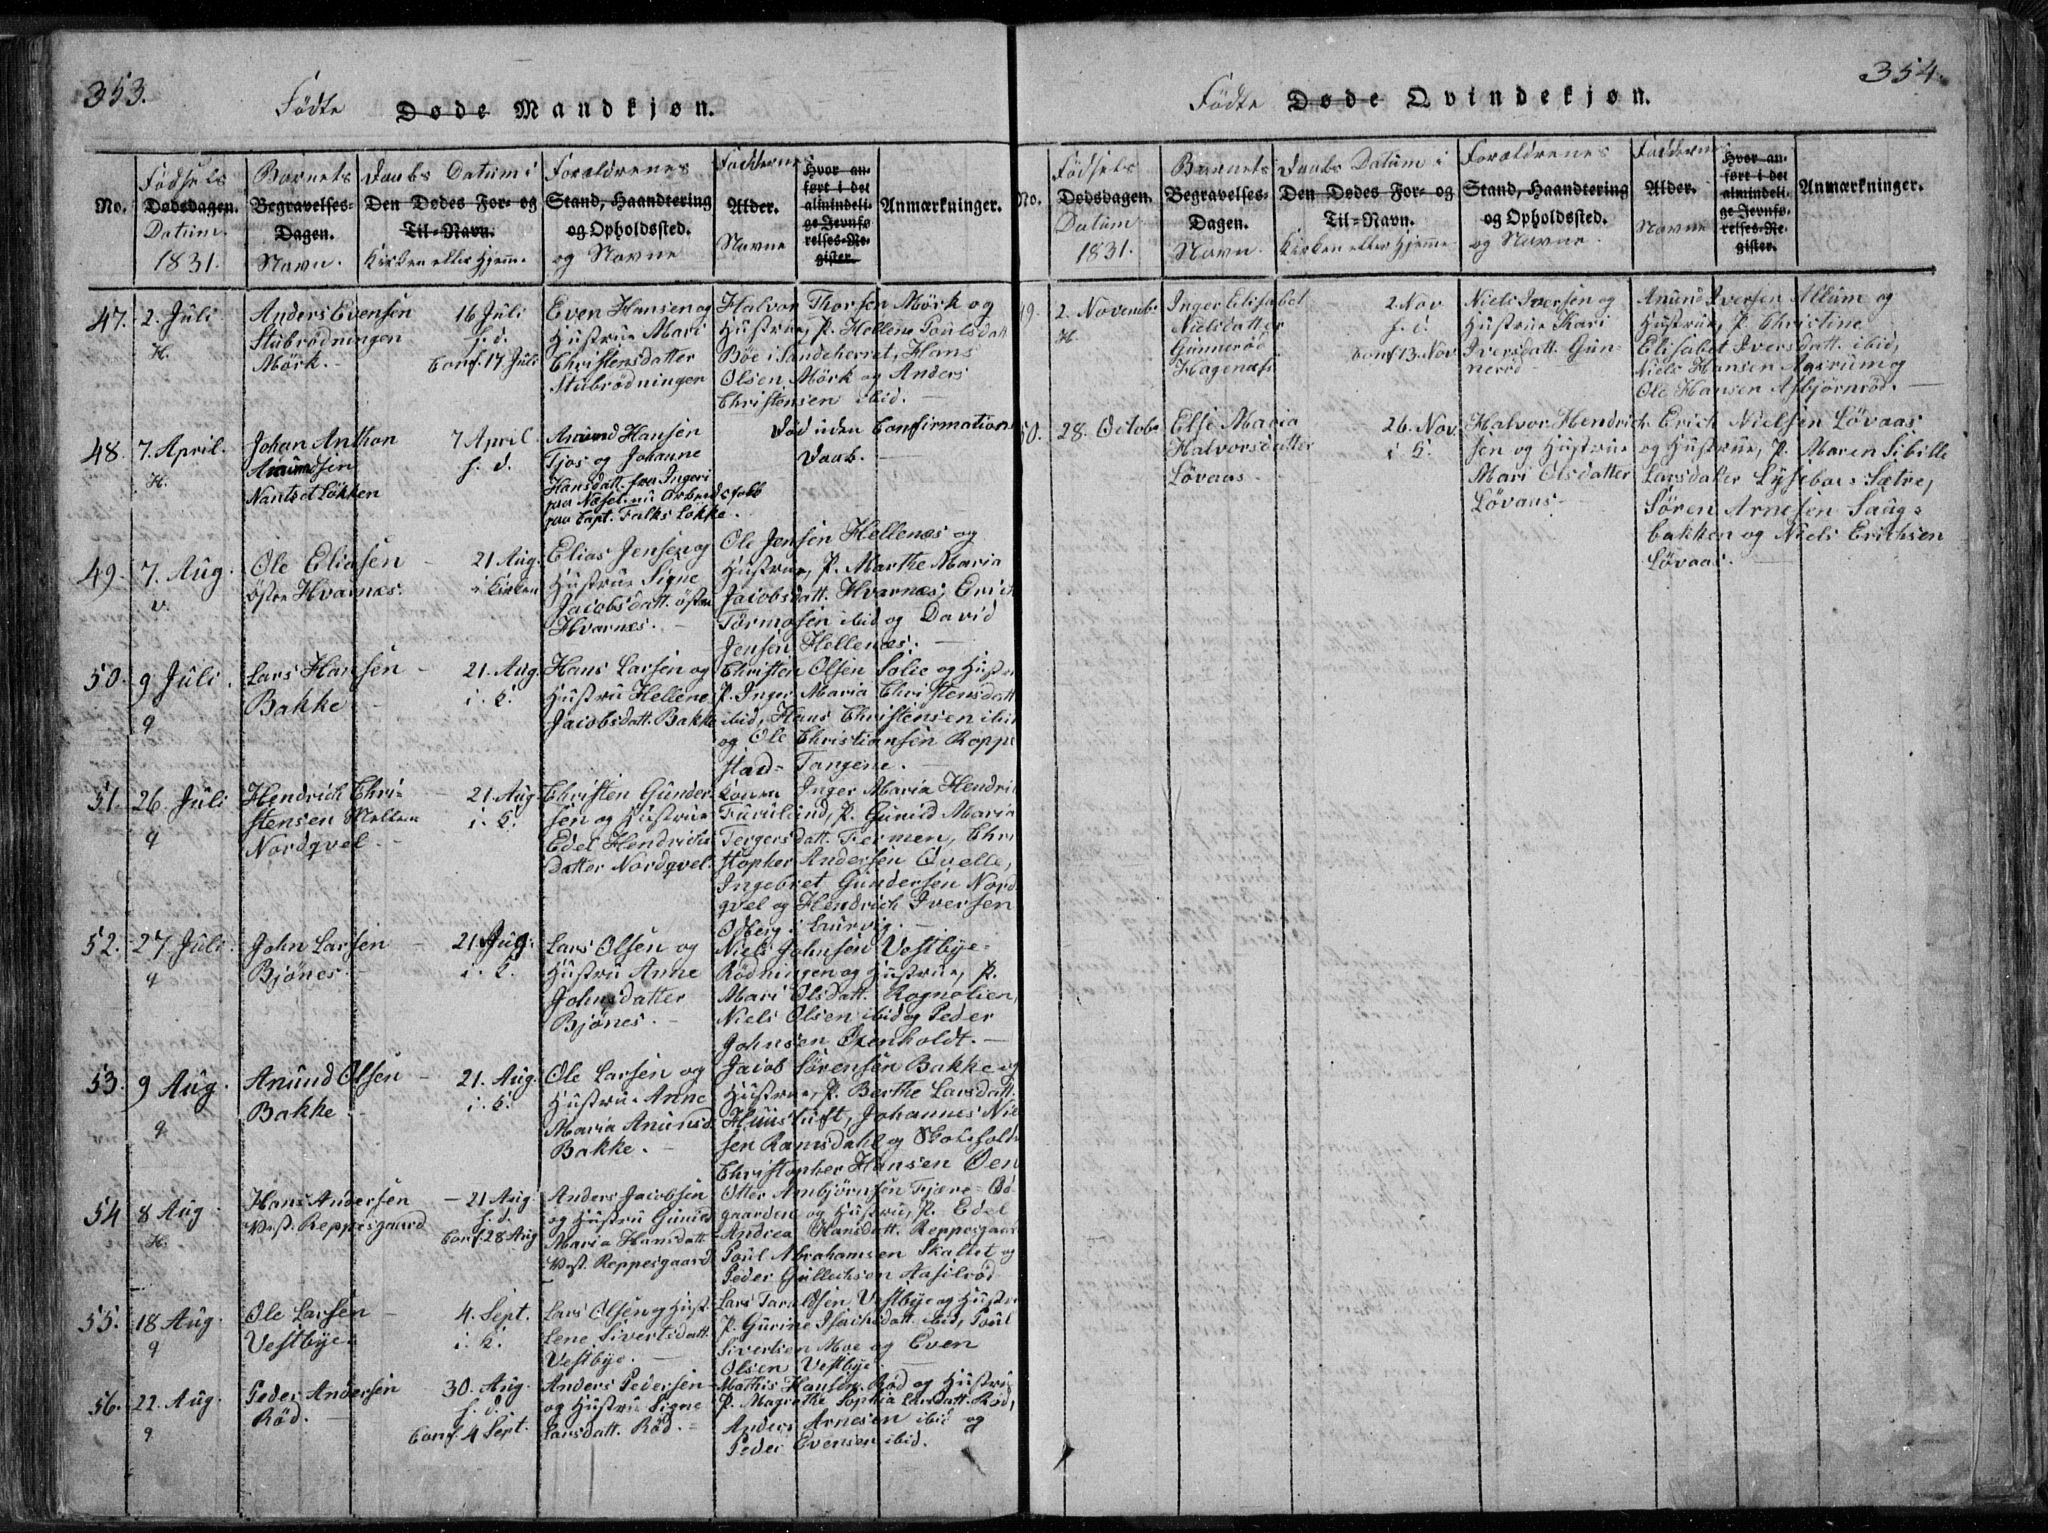 353.
Födte Døde Mandkjøn.
No.
Födsels
Dødsdagen.
Datum
1831.
Barnets
Begravelses-
Dagen.
Navn.
Daabs Datum i
Den Dødes For- og
Til-Navn.
Kirken eller Hjemme
Forældrenes
Stand, Haandtering
og Opholdssted.
og Navne
Faddernes
Alder.
Navne
Hvor an-
ført i det
almindeli-
ge Jevnfø-
relses-Re-
gister.
Anmærkninger.
47. 2. Juli
H.
Anders Evensen
Stubrødningen
Mörk.
16 Juli
h. d.
Conf. 17 Juli
Even Hansen og
Hustrue Mari
Christensdatter
Stubrödningen
Halvor Thorsen Mörk og
Hustrue, P. Hellene Poulsdatt
Böe i Sandeherret, Hans
Olsen Mörk og Anders
Christensen ibid.
48. 7. April.
H.
Johan Anthon
Amundsen
Nantset Lökken
7 April
h. d.
Amund Hansen
Tjos og Johanne
Hansdatt. fra Ingeri
paa Næset. nu Arbeidsfolk
paa Capt. Falks Lökke.
Död uden Confirmation
Daab.
49. 7. Aug.
v.
Ole Eliasen
öster Hvarnæs.
21 Aug.
i Kirken
Elias Jensen og
Hustrue Signe
Jacobsdatt. öster
Hvarnæs.
Ole Jensen Hellenæs og
Hustrue, P. Marthe Maria
Jacobsdatt. Hvarnæs, Erich
Tormosen ibid og David
Jensen Hellenæs.
50. 9 Juli.
q
Lars Hansen
Bakke
21. Aug.
i. K.
Hans Larsen og
Hustru Hellene
Jacobsdatt. Bakke
Christen Olsen Solie og Hustru
P. Inger Maria Christensdatt
ibid, Hans Christensen ibid
og Ole Christiansen Roppe
stad-Tangene.
51. 26. Juli
q
Hendrich Chri-
stensen Mellem
Nordqvel.
21. Aug.
i. K.
Christen Gunder-
sen og Hustrue
Edel Hendrichs
datter Nordqvel.
Konen Inger Maria Hendri
Furulund, P. Gunild Maria
Tergersdatt. Fermen, Chri
stopher Andersen Qvelle,
Ingebret Gundersen Nord
qvel og Hendrich Iversen
Odberg i Laurvig.
52. 27. Juli.
q
John Larsen
Bjönes.
21. Aug.
i. K.
Lars Olsen og
Hustru Anne
Johnsdatter
Bjönes.
Niels Johnsen Vestbye-
Rödningen og Hustrue, P.
Mari Olsdatt. Rognelien,
Niels Olsen ibid og Peder
Johnsen Oxenholdt.
53. 9 Aug.
q.
Anund Olsen
Bakke
21. Aug.
i. K.
Ole Larsen og
Hustrue Anne
Maria Anunds.
Bakke.
Jacob Sörensen Bakke og
Hustrue, P. Berthe Larsdatt.
Huustuft, Johannes Niel
sen Ramsdahl og
Christopher Hansen Öen
54 8 Aug.
H.
Hans Andersen
Vest. Reppesgaard
21 Aug.
h. d.
Conf. 28 Aug
Anders Jacobsen
og Hustru Gunild
Maria Hansdatt
Vest. Reppesgaard
Otter Ambjörnsen Fjære-Öd-
gaarden og Hustru, P. Edel
Andrea Hansdatt. Reppesgaard
Poul Abrahamsen Skaltet og
Peder Gullichsen Aasilröd
55. 18 Aug.
q
Ole Larsen
Vestbye.
4. Sept.
i. K.
Lars Olsen og Hust.
Lene Sivertsdatt.
Vestbye.
Lars Taraldsen Vestbye og Hustru
P. Gurine Isachsdatt. ibid, Poul
Sivertsen Moe og Even
Olsen Vestbye.
56. 22. Aug.
q.
Peder Andersen
Röd.
30. Aug.
h. d.
Conf. 4 Sept.
Anders Pedersen
og Hustru Signe
Larsdatt. Röd.
Mathis Hansen Röd og Hustru
P. Magrethe Sophia Larsdatt. Röd,
Anders Arnesen ibid og
Peder Evensen ibid.
354.
Födte Døde Qvindekjøn.
No.
Födsels
Dødsdagen.
Datum
1831.
Barnets
Begravelses-
Dagen.
Navn.
Daabs Datum i
Den Dødes For- og
Til-Navn.
Kirken eller Hjemme
Forældrenes
Stand, Haandtering
og Opholdssted.
og Navne.
Faddernes
Alder.
Navne
Hvor an-
ført i det
almindeli-
ge Jevnfø-
relses-Re-
gister.
Anmærkninger.
49. 2. Novemb.
H.
Inger Elisabet
Nielsdatter
Gunneröd
Hagenæs.
2. Nov
h. d.
Conf 13. Nov.
Niels Iversen og
Hustrue Kari
Iversdatt. Gun-
neröd
Anund Iversen Allum og
Hustrue, P. Christine
Elisabet Iversdatt. ibid,
Niels Hansen Aasrum og
Ole Hansen Asbjörnröd.
50. 28. Octob.
Else Maria
Halvorsdatter
Lövaas
26. Nov.
i K.
Halvor Hendrich
sen og Hustrue
Mari Olsdatter
Lövaas
Erich Nielsen Lövaas
og Hustrue, P. Maren Sibille
Larsdatter Lyseboe Sætre,
Sören Arnesen Saug-
bakken og Niels Erichsen
Lövaas.